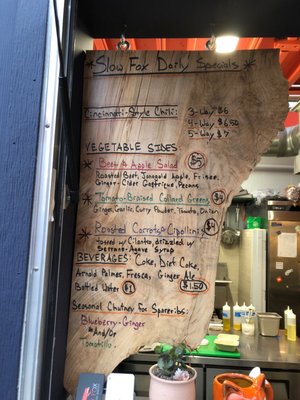 *Slow Fox Daily Specials*
Cincinnati-Style Chili: 3-Way $6
4-Way $6.50
5-Way $7
VEGETABLE SIDES
* Beet & Apple Salad $5
Roasted Beet, Jonagold Apple, Frisee,
Ginger-Cider Gastrique, Pecans
* Tomato-Braised Collard Greens $4
Ginger, Garlic, Curry Powder, Tomato, Onion
* Roasted Carrots & Cipollinis $4
tossed w/ Cilantro, drizzled w/
Serrano-Agave Syrup
BEVERAGES: Coke, Diet Coke,
Arnold Palmer, Fresca, Ginger Ale
Bottled Water $1 $1.50
Seasonal Chutney For Spareribs:
Blueberry-Ginger
*And/Or
Tomatillo